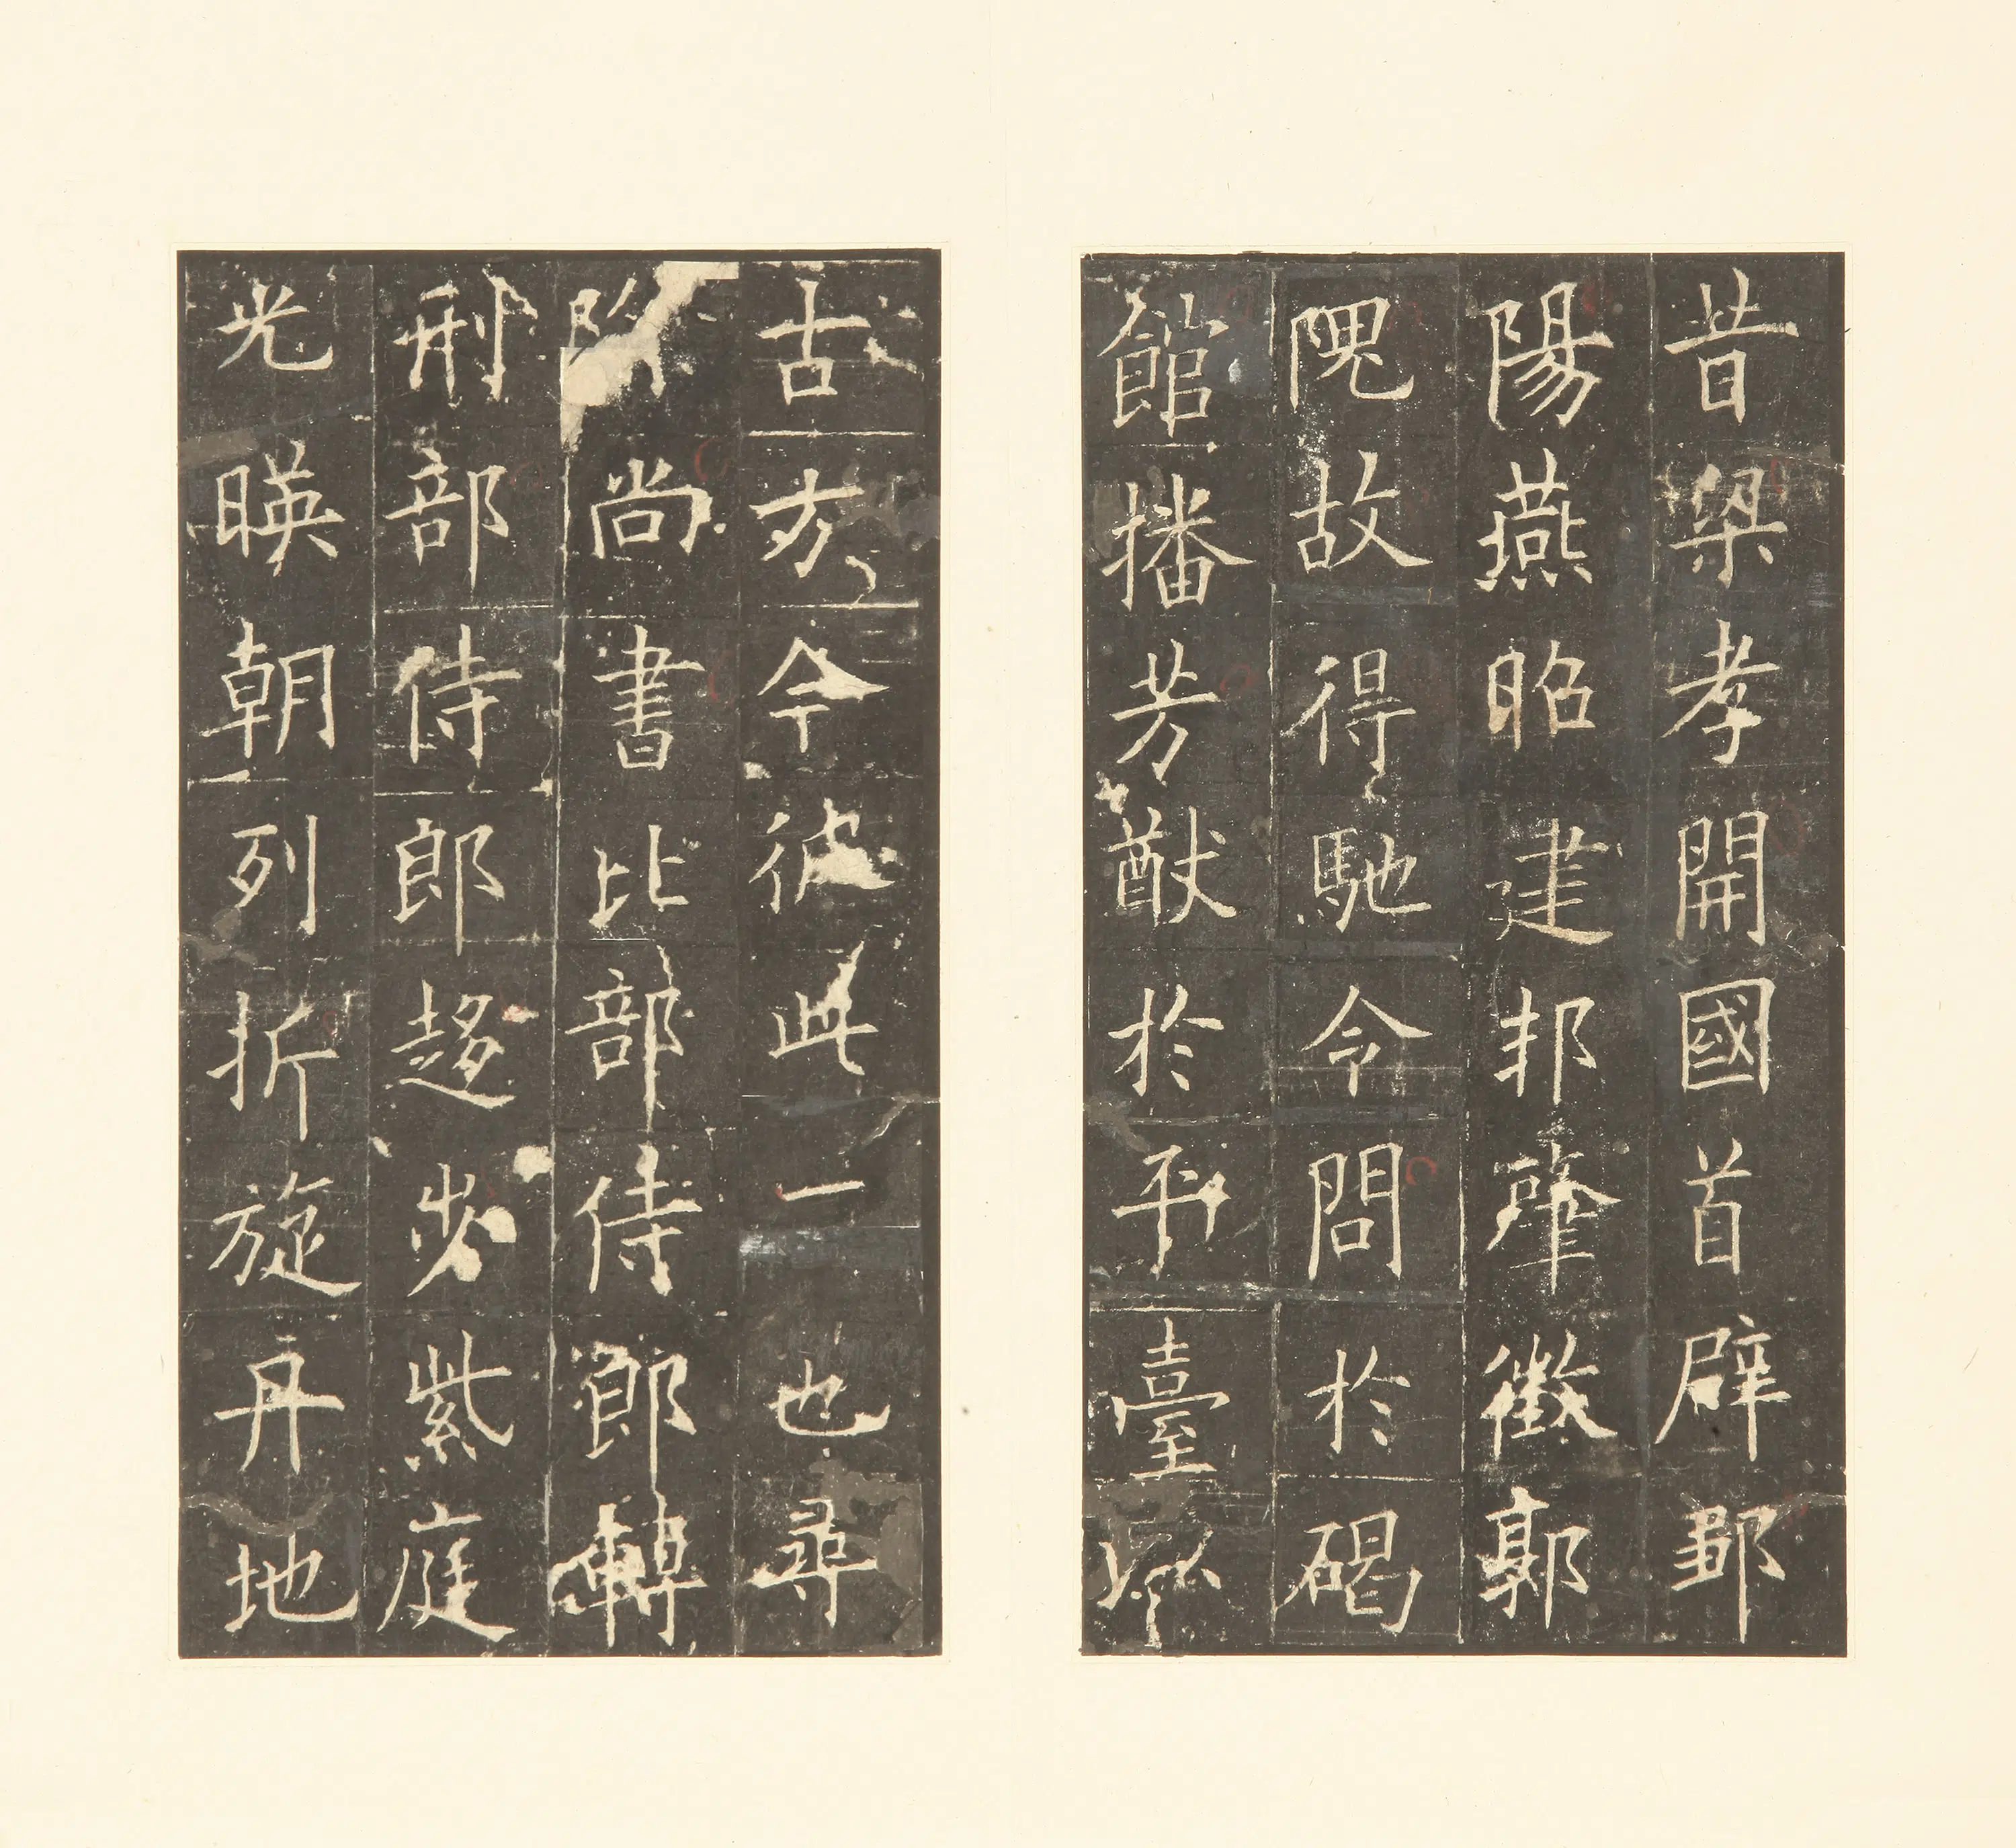 昔梁孝開國首辟鄒
陽燕昭建邦肇徵郭
隗故得馳令問於碣
館播芳猷於平臺
古方今彼此一也尋
尚書比部侍郎轉
刑部侍郎趍步紫庭
光暎朝列折旋丹地